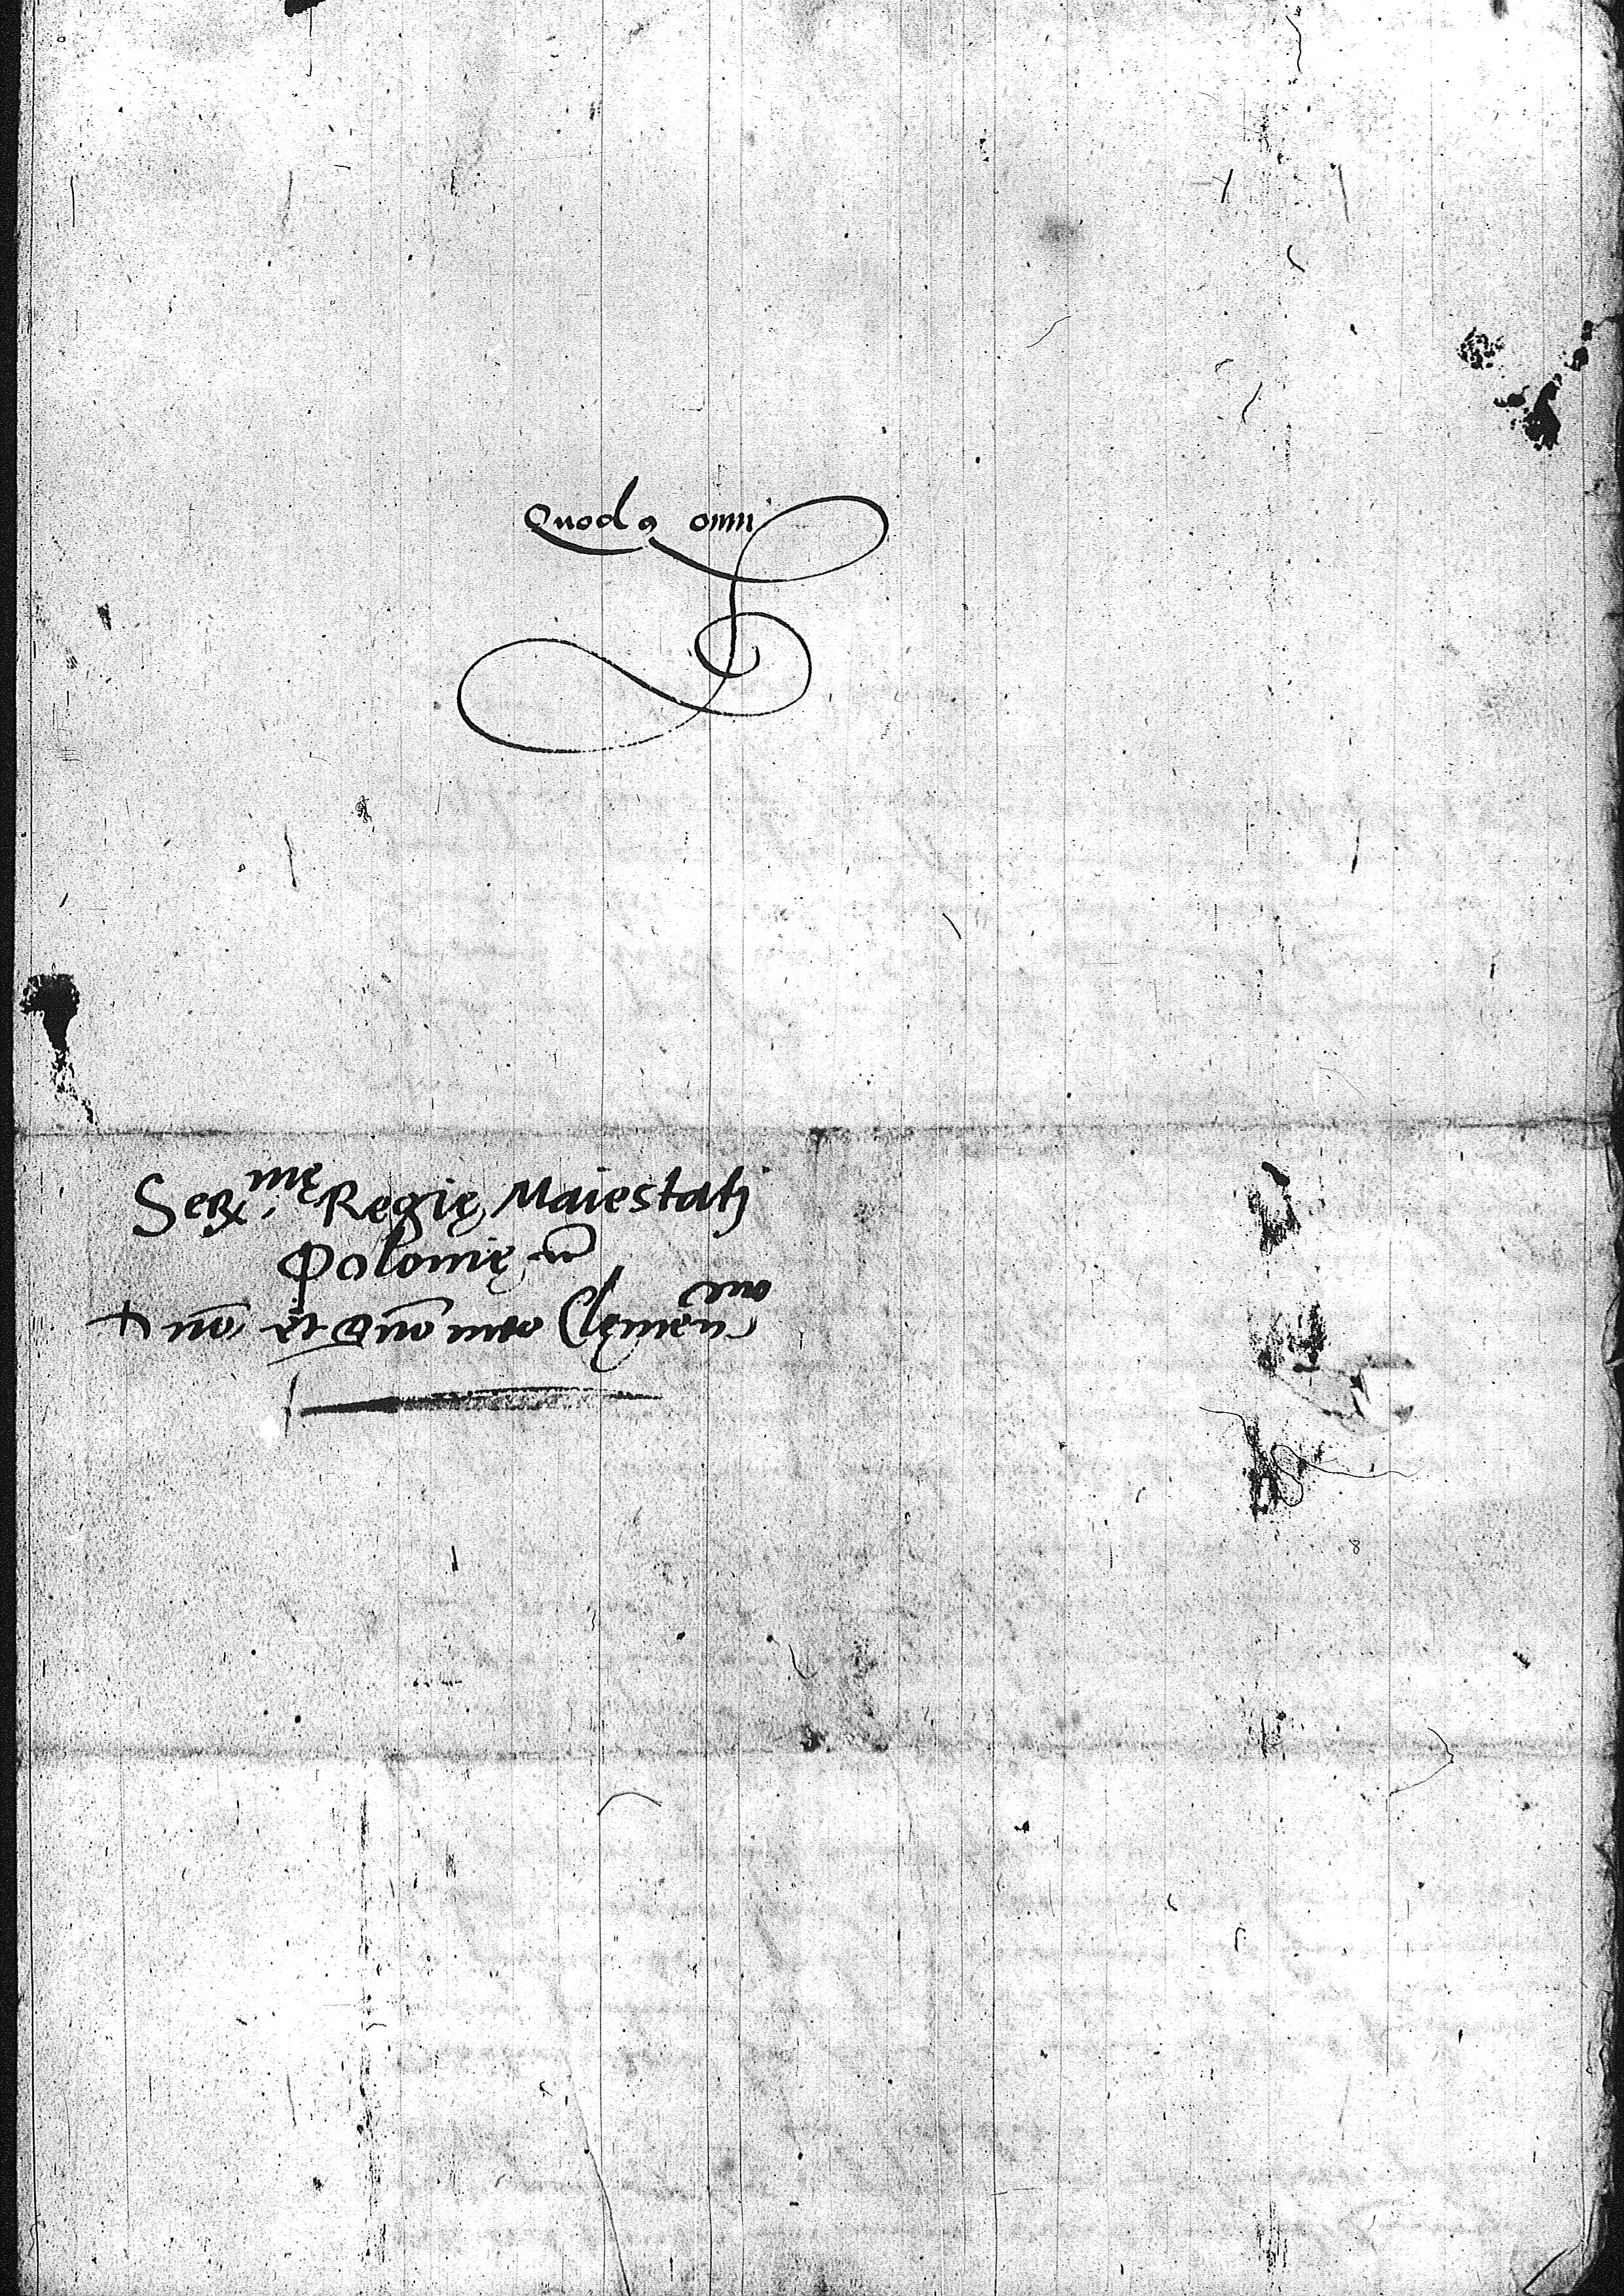 Quod 9 omni
Ser.mę Regię Maiestatj
Polonię
dno et dno meo Clemenmo